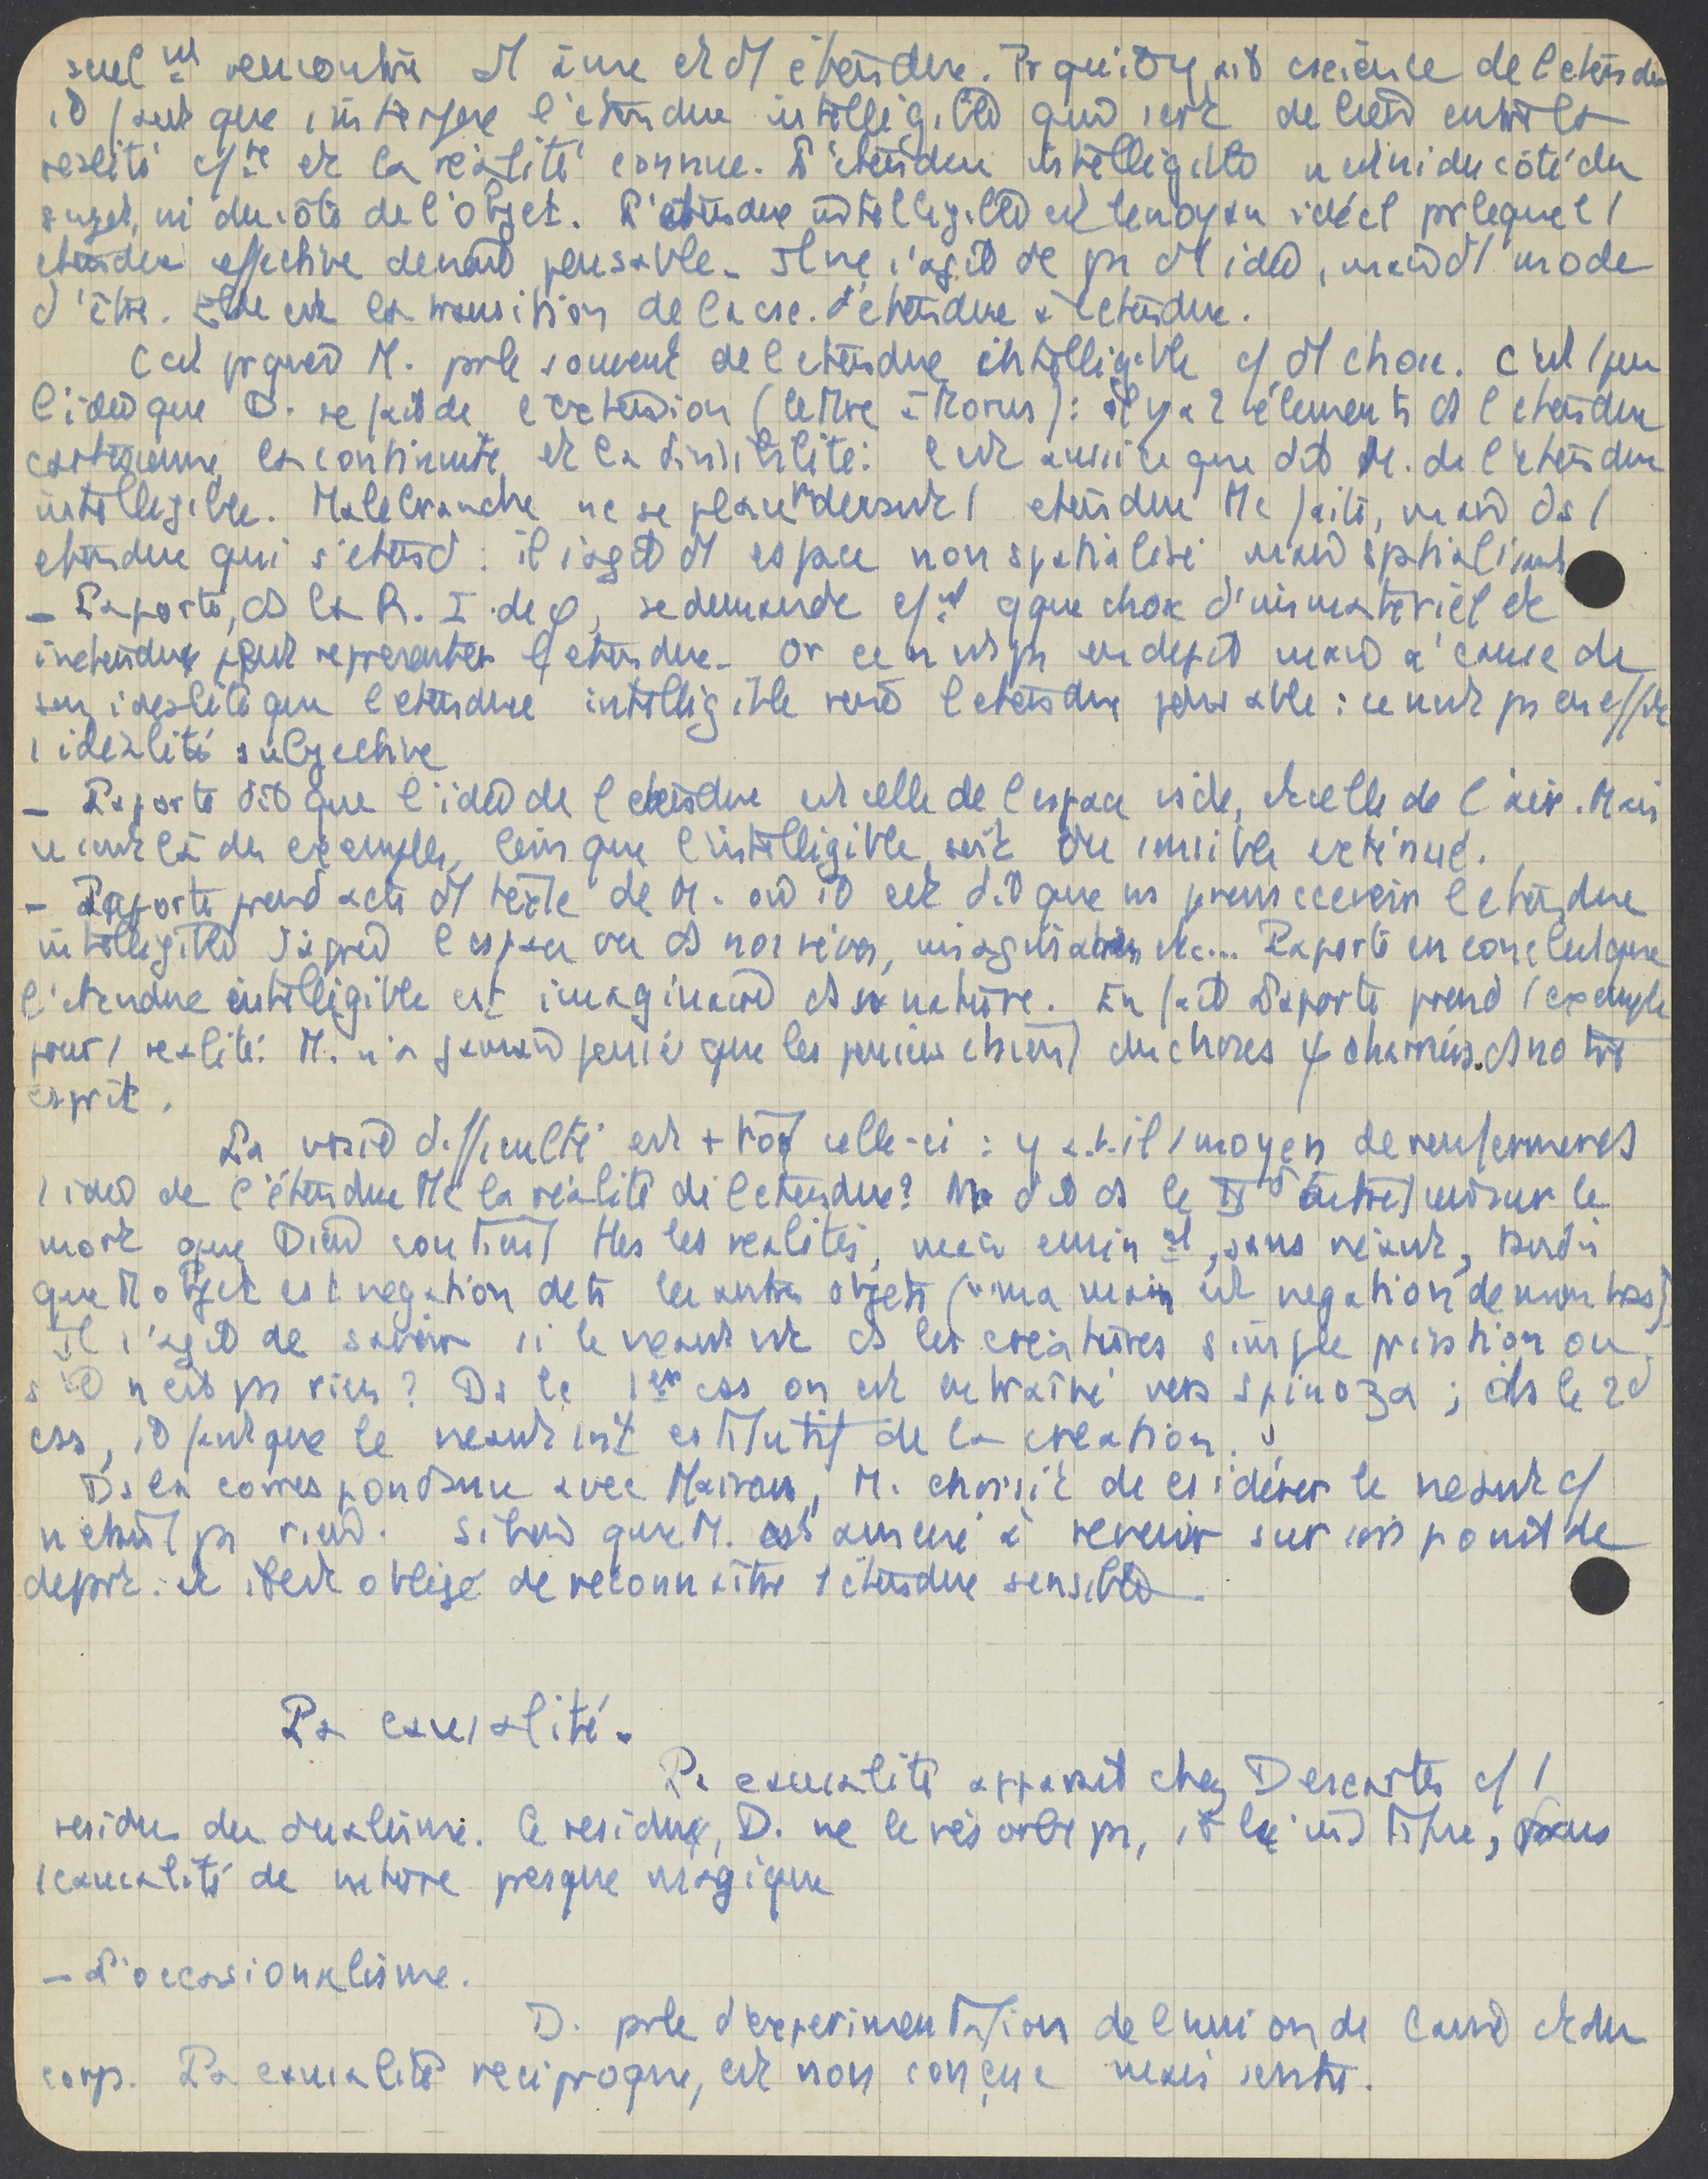 seul nt rencontre d'1 âme et d'1 étendue. Pr qu'il y ait cscience de l'étendue
il faut que interfère l'étendue intelligible qui sert de lien entre la
réalité et la réalité connue. L'étendue intelligible n'est ni du côté du
sujet, ni du côté de l'objet. L'étendue intelligible est le noyau idéel pr lequel l'
étendue effective devient pensable. Il ne s'agit de ps d'1 idée, mais d'1 mode
d'être. Elle est la transition de la csc. d'étendue à l'étendue.
C'est pr quoi M. parle souvent de l'étendue intelligible cf d'1 chose. C'est 1 peu
l'idée que D. se fait de l'extension (lettre à Morus) : il y a 2 éléments ds l'étendue
cartésienne, la continuité et la divisibilité : c'est aussi ce que dit M. de l'étendue
intelligible. Malebranche ne se place ps devant 1 étendue tte faite, mais ds 1
étendue qui s'étend : il s'agit d'1 espace non spatialisé mais spatialisant
– Laporte, ds la R. I. de φ, se demande cfnt qque chose d'immatériel et
inétendue peut représenter l'étendue. Or ce n'est ps en dépit mais à cause de
son idéalité que l'étendue intelligible rend l'étendue pensable : ce n'est ps en effet
1 idéalité subjective
– Laporte dit que l'idée de l'étendue est celle de l'espace vide, et celle de l'air. Mais
ce sont là des exemples, loin que l'intelligible soit du sensible exténué.
– Laporte prend acte d'1 texte de M. où il est dit que ns pouvs ccevoir l'étendue
intelligible d'après l'espace vu ds nos rêves, imaginations etc... Laporte en conclut que
l'étendue intelligible est imaginaire ds sa nature. En fait Laporte prend l'exemple
pour 1 réalité. M. n'a jamais pensé que les pensées étaient des choses ds notre
esprit.
La vraie difficulté est + tôt celle-ci : y a-t-il 1 moyen de renfermer ds
1 idée de l'étendue tte la réalité de l'étendue ? M. dit ds le entretien sur la
mort que Dieu contient ttes les réalités, mais éminnt, sans néant, tandis
que tt objet est négation de ts les autres objets (ma main est négation de mon bras)
Il s'agit de savoir si le néant est ds les créatures simple privation ou
s'il n'est ps rien ? Ds le 1er cas on est entraîné vers Spinoza ; ds le 2d
cas, il faut que le néant soit cstitutif de la création.
Ds la correspondance avec Mairan, M. choisit de csidérer le néant cf
n'étant ps rien. Si bien que M. est amené à revenir sur son point de
départ et il est obligé de reconnaître 1 étendue sensible
La causalité.
La causalité apparaît chez Descartes cf 1
résidu du dualisme. Ce résidu, D. ne le résorbe ps, il le institue, dans
1 causalité de nature presque magique
– L'occasionalisme.
D. parle d'expérimentation de l'union de l'âme et du
corps. La causalité réciproque, est non conçue mais sentie.